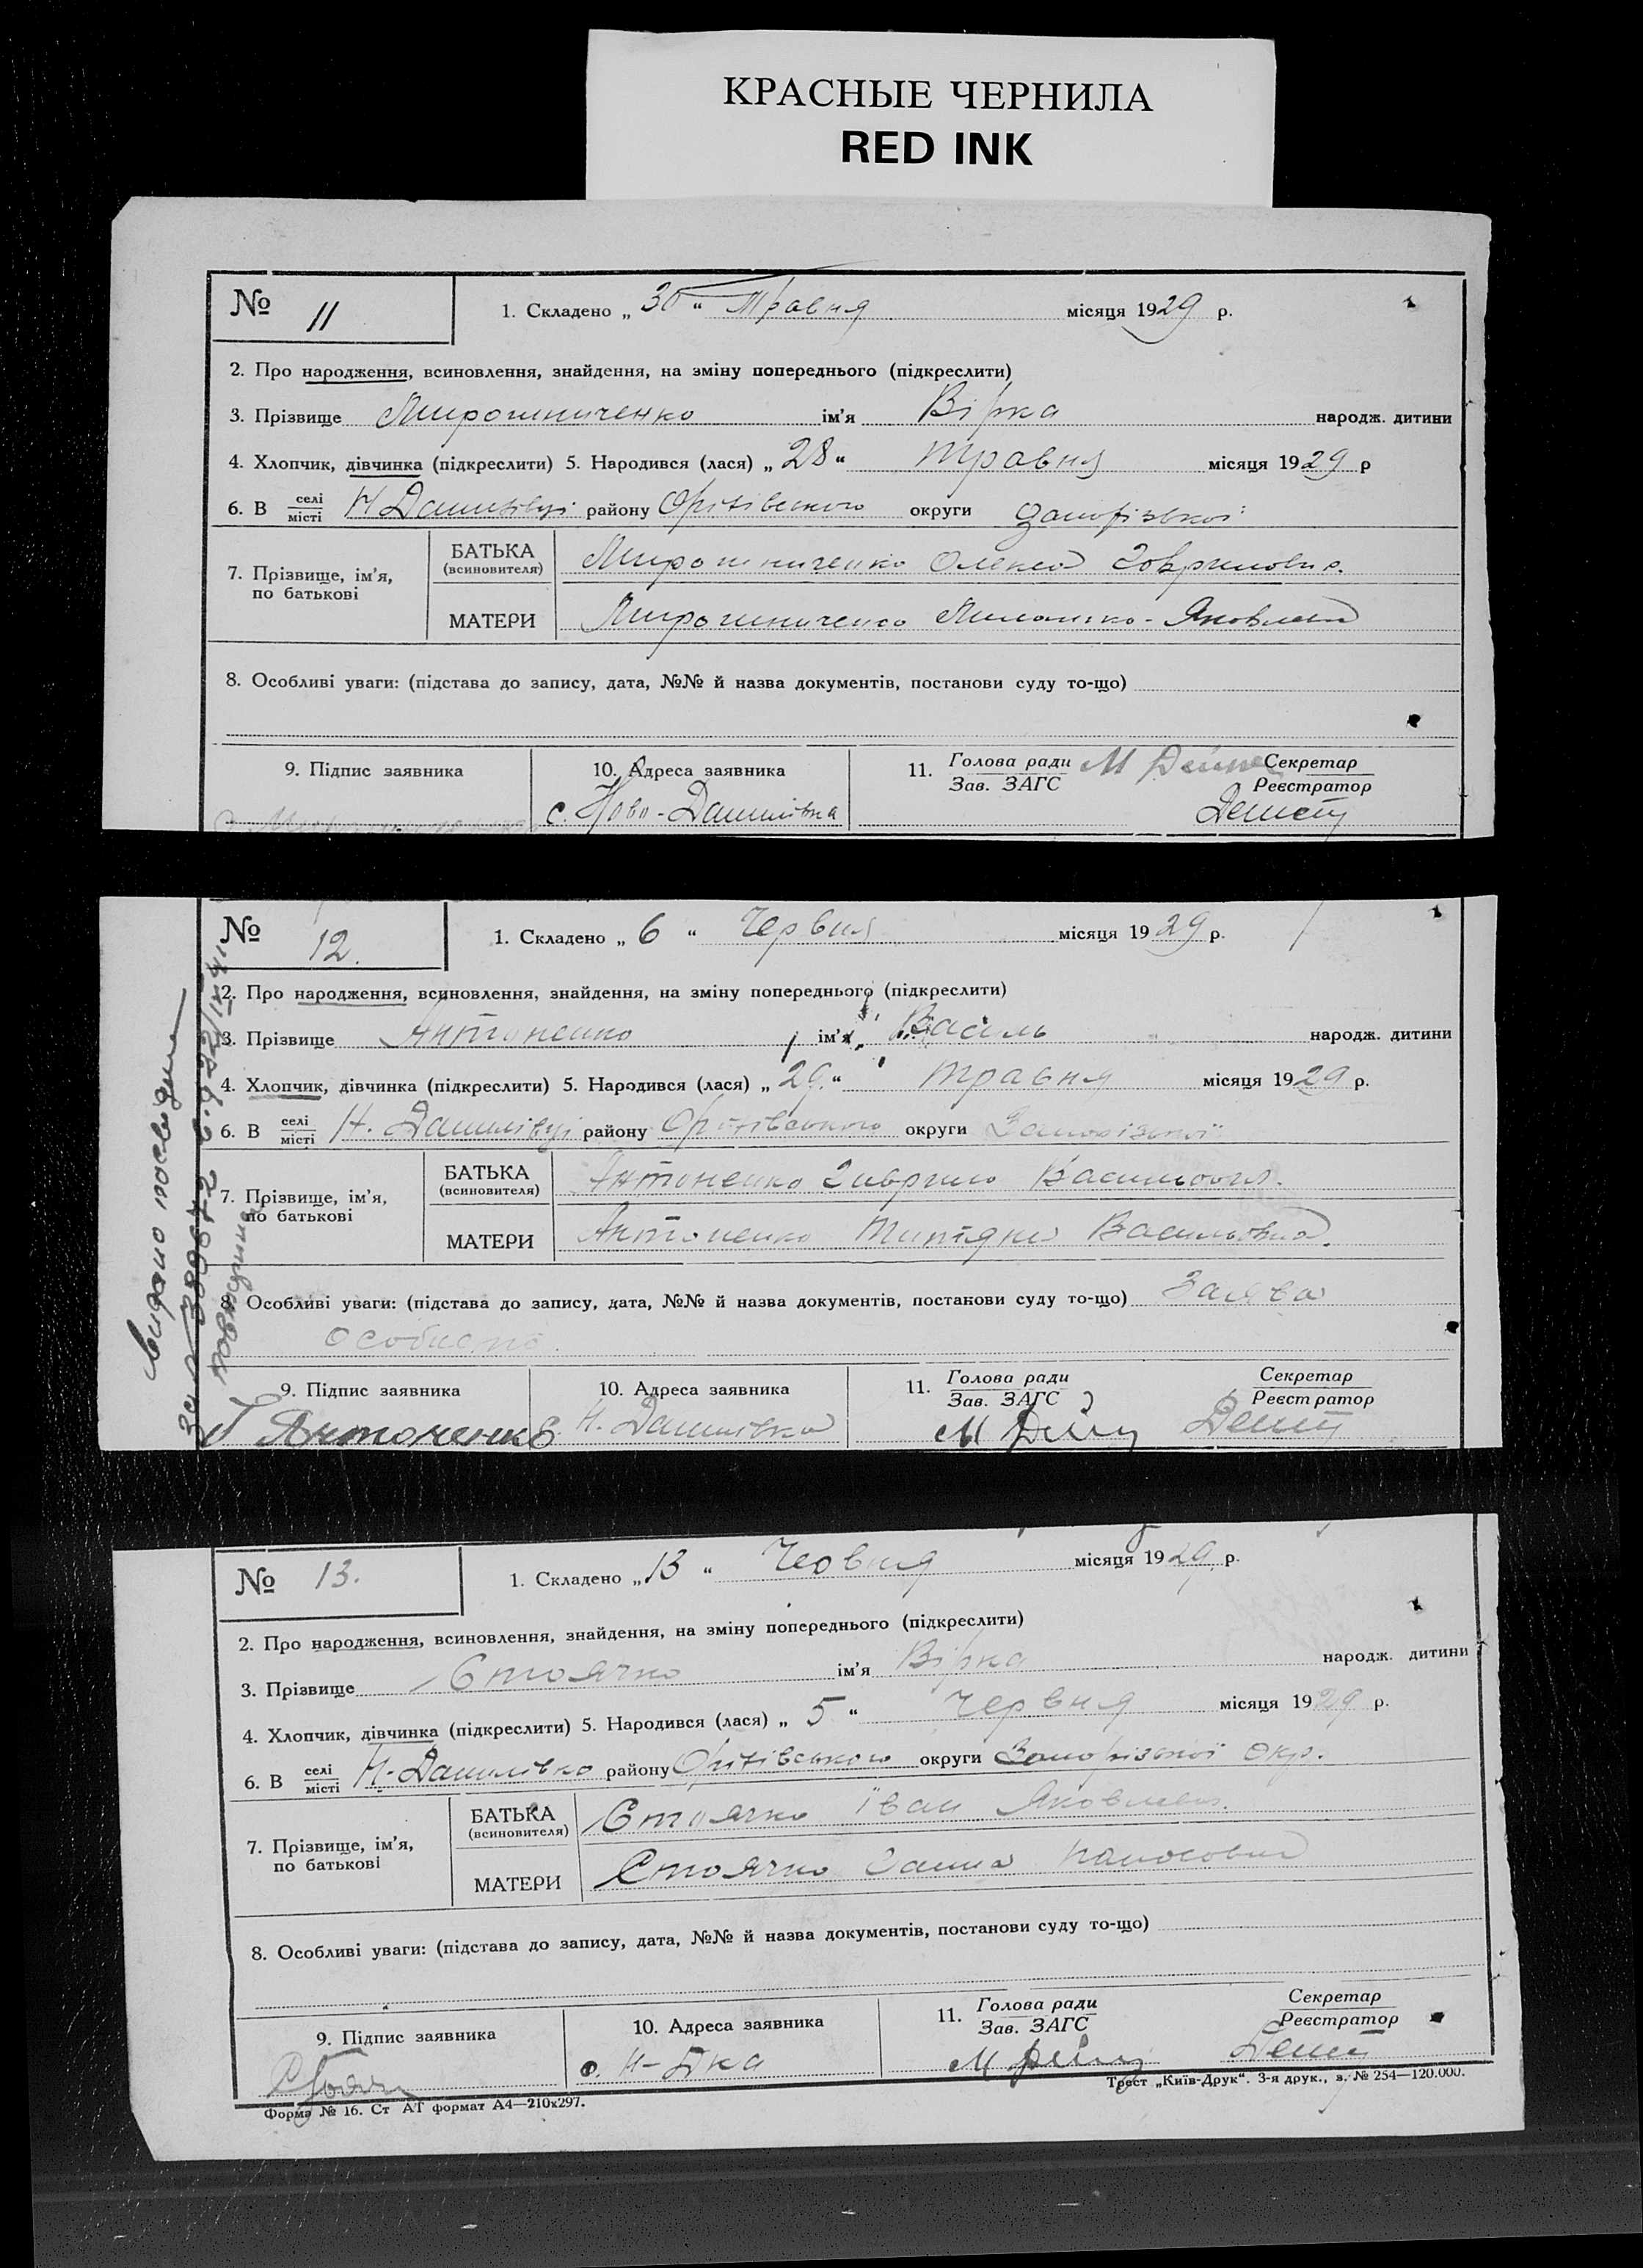 КРАСНЫЕ ЧЕРНИЛА
RED INK
№ 11
1. Складено „ 30 “ Травня місяця 1929 р.
2. Про народження, всиновлення, знайдення, на зміну попереднього (підкреслити)
3. Прізвище Мирошниченко ім’я Вірка народж. дитини
4. Хлопчик, дівчинка (підкреслити) 5. Народився (лася) „ 28 “ травня місяця 1929 р
6. В селі місті Н Данилівці району Оріхівського округи Запорізької
7. Прізвище, ім’я, по батькові
БАТЬКА (всиновителя) Мирошниченко Олекса Гаврилович.
МАТЕРИ Мирошниченко Миланка Яковлевна
8. Особливі уваги: (підстава до запису, дата, №№ й назва документів, постанови суду то-що)
9. Підпис заявника 10. Адреса заявника 11. Голова ради Зав. ЗАГС М Секретар Реєстратор
с. Ново-Данилівка
№ 12.
1. Складено „ 6 “ Червня місяця 1929 р.
2. Про народження, всиновлення, знайдення, на зміну попереднього (підкреслити)
3. Прізвище Антоненко ім’я Василь народж. дитини
4. Хлопчик, дівчинка (підкреслити) 5. Народився (лася) „ 29. “ травня місяця 1929 р.
6. В селі місті Н. Данилівці району Оріхівського округи Запорізької
7. Прізвище, ім’я, по батькові
БАТЬКА (всиновителя) Антоненко Гаврило Васильович.
МАТЕРИ Антоненко Титяна Васильовна.
8. Особливі уваги: (підстава до запису, дата, №№ й назва документів, постанови суду то-що) Заява
особиста.
9. Підпис заявника 10. Адреса заявника 11. Голова ради Зав. ЗАГС Секретар Реєстратор
Г Антоненко Н. Данилівка М
видано
№ 13.
1. Складено „ 13 “ Червня місяця 1929 р.
2. Про народження, всиновлення, знайдення, на зміну попереднього (підкреслити)
3. Прізвище Стоячко ім’я Вірка народж. дитини
4. Хлопчик, дівчинка (підкреслити) 5. Народився (лася) „ 5 “ Червня місяця 1929 р.
6. В селі місті Н-Данилівка району Оріхівського округи Запорізької окр.
7. Прізвище, ім’я, по батькові
БАТЬКА (всиновителя) Стоячко Іван Яковлевич.
МАТЕРИ Стоячко Ганна Панасовна
8. Особливі уваги: (підстава до запису, дата, №№ й назва документів, постанови суду то-що)
9. Підпис заявника 10. Адреса заявника 11. Голова ради Зав. ЗАГС Секретар Реєстратор
с. Н-Дка М
Форма № 16. Ст АТ формат А4—210х297.
Трест „Київ-Друк“. 3-я друк., з. № 254—120.000.